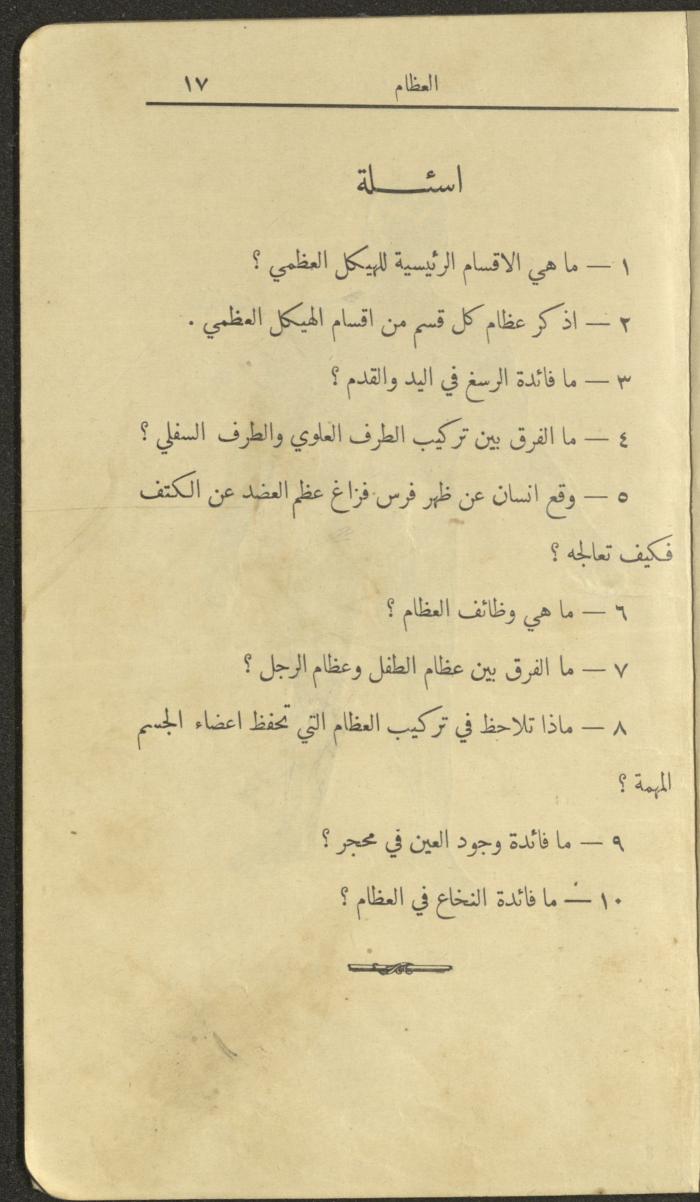 العظام ١٧
اسئلة
١ — ما هي الاقسام الرئيسية للهيكل العظمي ؟
٢ — اذكر عظام كل قسم من اقسام الهيكل العظمي .
٣ — ما فائدة الرسغ في اليد والقدم ؟
٤ — ما الفرق بين تركيب الطرف العلوي والطرف السفلي ؟
٥ — وقع انسان عن ظهر فرس فزاغ عظم العضد عن الكتف
فكيف تعالجه ؟
٦ — ما هي وظائف العظام ؟
٧ — ما الفرق بين عظام الطفل وعظام الرجل ؟
٨ — ماذا تلاحظ في تركيب العظام التي تحفظ اعضاء الجسم
المهمة ؟
٩ — ما فائدة وجود العين في محجر ؟
١٠ — ما فائدة النخاع في العظام ؟